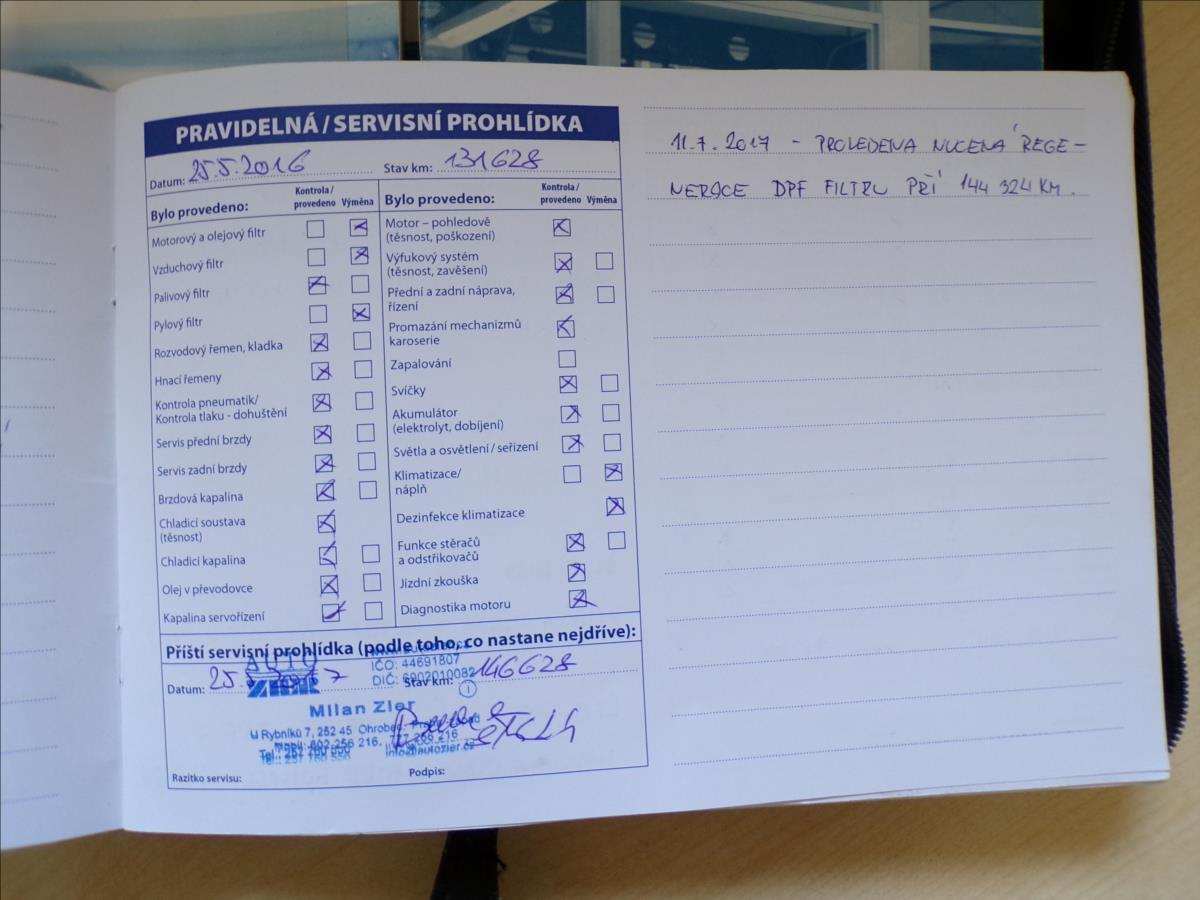 PRAVIDELNÁ / SERVISNÍ PROHLÍDKA
Datum: 25.5.2016 Stav km: 131628
Bylo provedeno: Kontrola / provedeno Výměna
Motorový a olejový filtr
Vzduchový filtr
Palivový filtr
Pylový filtr
Rozvodový řemen, kladka
Hnací řemeny
Kontrola pneumatik/
Kontrola tlaku - dohuštění
Servis přední brzdy
Servis zadní brzdy
Brzdová kapalina
Chladicí soustava
(těsnost)
Chladicí kapalina
Olej v převodovce
Kapalina servořízení
Bylo provedeno: Kontrola / provedeno Výměna
Motor – pohledově
(těsnost, poškození)
Výfukový systém
(těsnost, zavěšení)
Přední a zadní náprava,
řízení
Promazání mechanizmů
karoserie
Zapalování
Svíčky
Akumulátor
(elektrolyt, dobíjení)
Světla a osvětlení / seřízení
Klimatizace/
náplň
Dezinfekce klimatizace
Funkce stěračů
a odstřikovačů
Jízdní zkouška
Diagnostika motoru
Příští servisní prohlídka (podle toho, co nastane nejdříve):
AUTO
IČO: 44691807
DIČ: 6902010082
Datum: 25. Stav km: 146628
Milan Zler
U Rybníků 7, 252 45 Ohrobec,
Mobil: 602 256 216, 777 256 216
Tel.: 257 760 550 info@autozier.cz
Razítko servisu: Podpis:
11.7.2017 - PROVEDENA NUCENÁ REGE-
NERACE DPF FILTRU PŘI 144 324 KM.